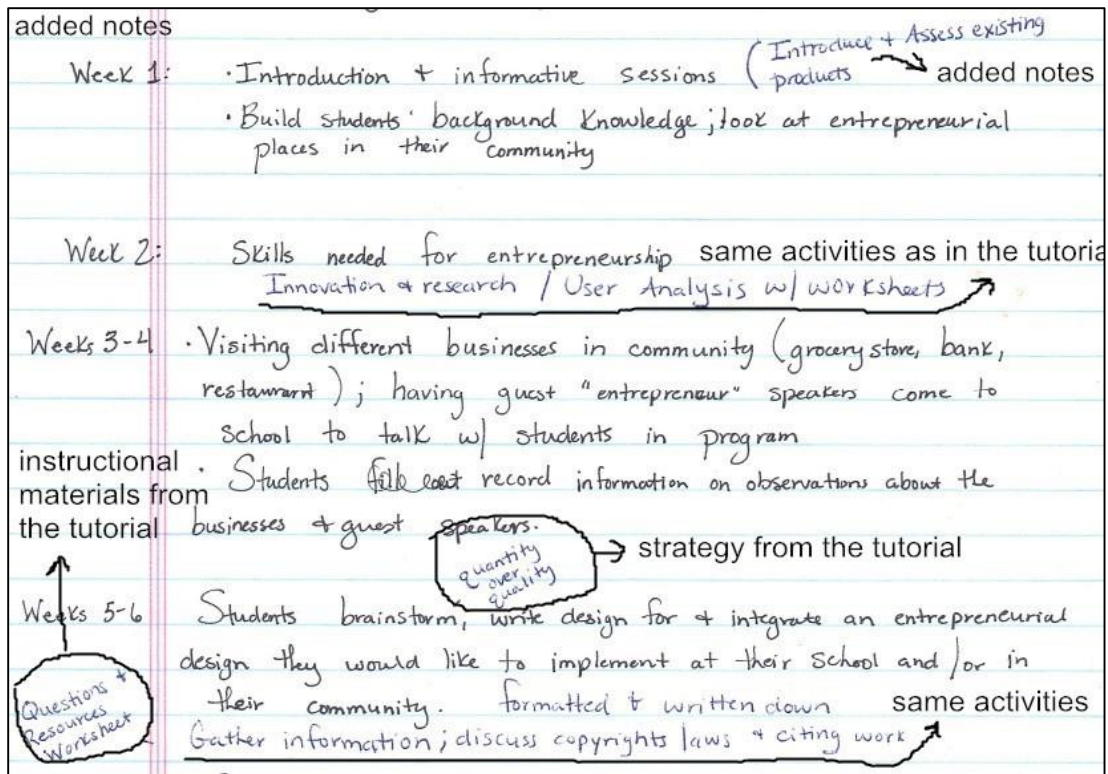 added notes
Introduce + Assess existing
Week 1: · Introduction + informative sessions ( products added notes
· Build students' background knowledge; look at entrepreneurial
places in their community
Week 2: Skills needed for entrepreneurship same activities as in the tutoria
Innovation & research / User Analysis w/ worksheets
Weeks 3-4 · Visiting different businesses in community (grocery store, bank,
restaurant); having guest "entrepreneur" speakers come to
school to talk w/ students in program
instructional
materials from
the tutorial
· Students record information on observations about the
businesses & guest speakers.
quantity
over
quality
strategy from the tutorial
Weeks 5-6 Students brainstorm, write design for & integrate an entrepreneurial
design they would like to implement at their school and/or in
their community. formatted & written down same activities
Gather information; discuss copyrights laws & citing work
Questions +
Resources
Worksheet